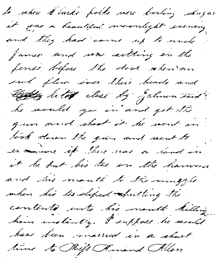 to where Clark's folks were boiling sugar
it was a beautiful moonlight evening
and they had come up to uncle
James and was sitting in the
house before the door when an
owl flew over their heads and
lit close by Galusia said
he would go in and get the
gun and shoot it he went in
took down the gun and went to
examine if there was a load in
it he put his toe on the hammer
and his mouth to the muzzle
when his toe slipped putting the
contents into his mouth killing
him instantly. I suppose he would
have been married in a short
time to Miss Amand Allen